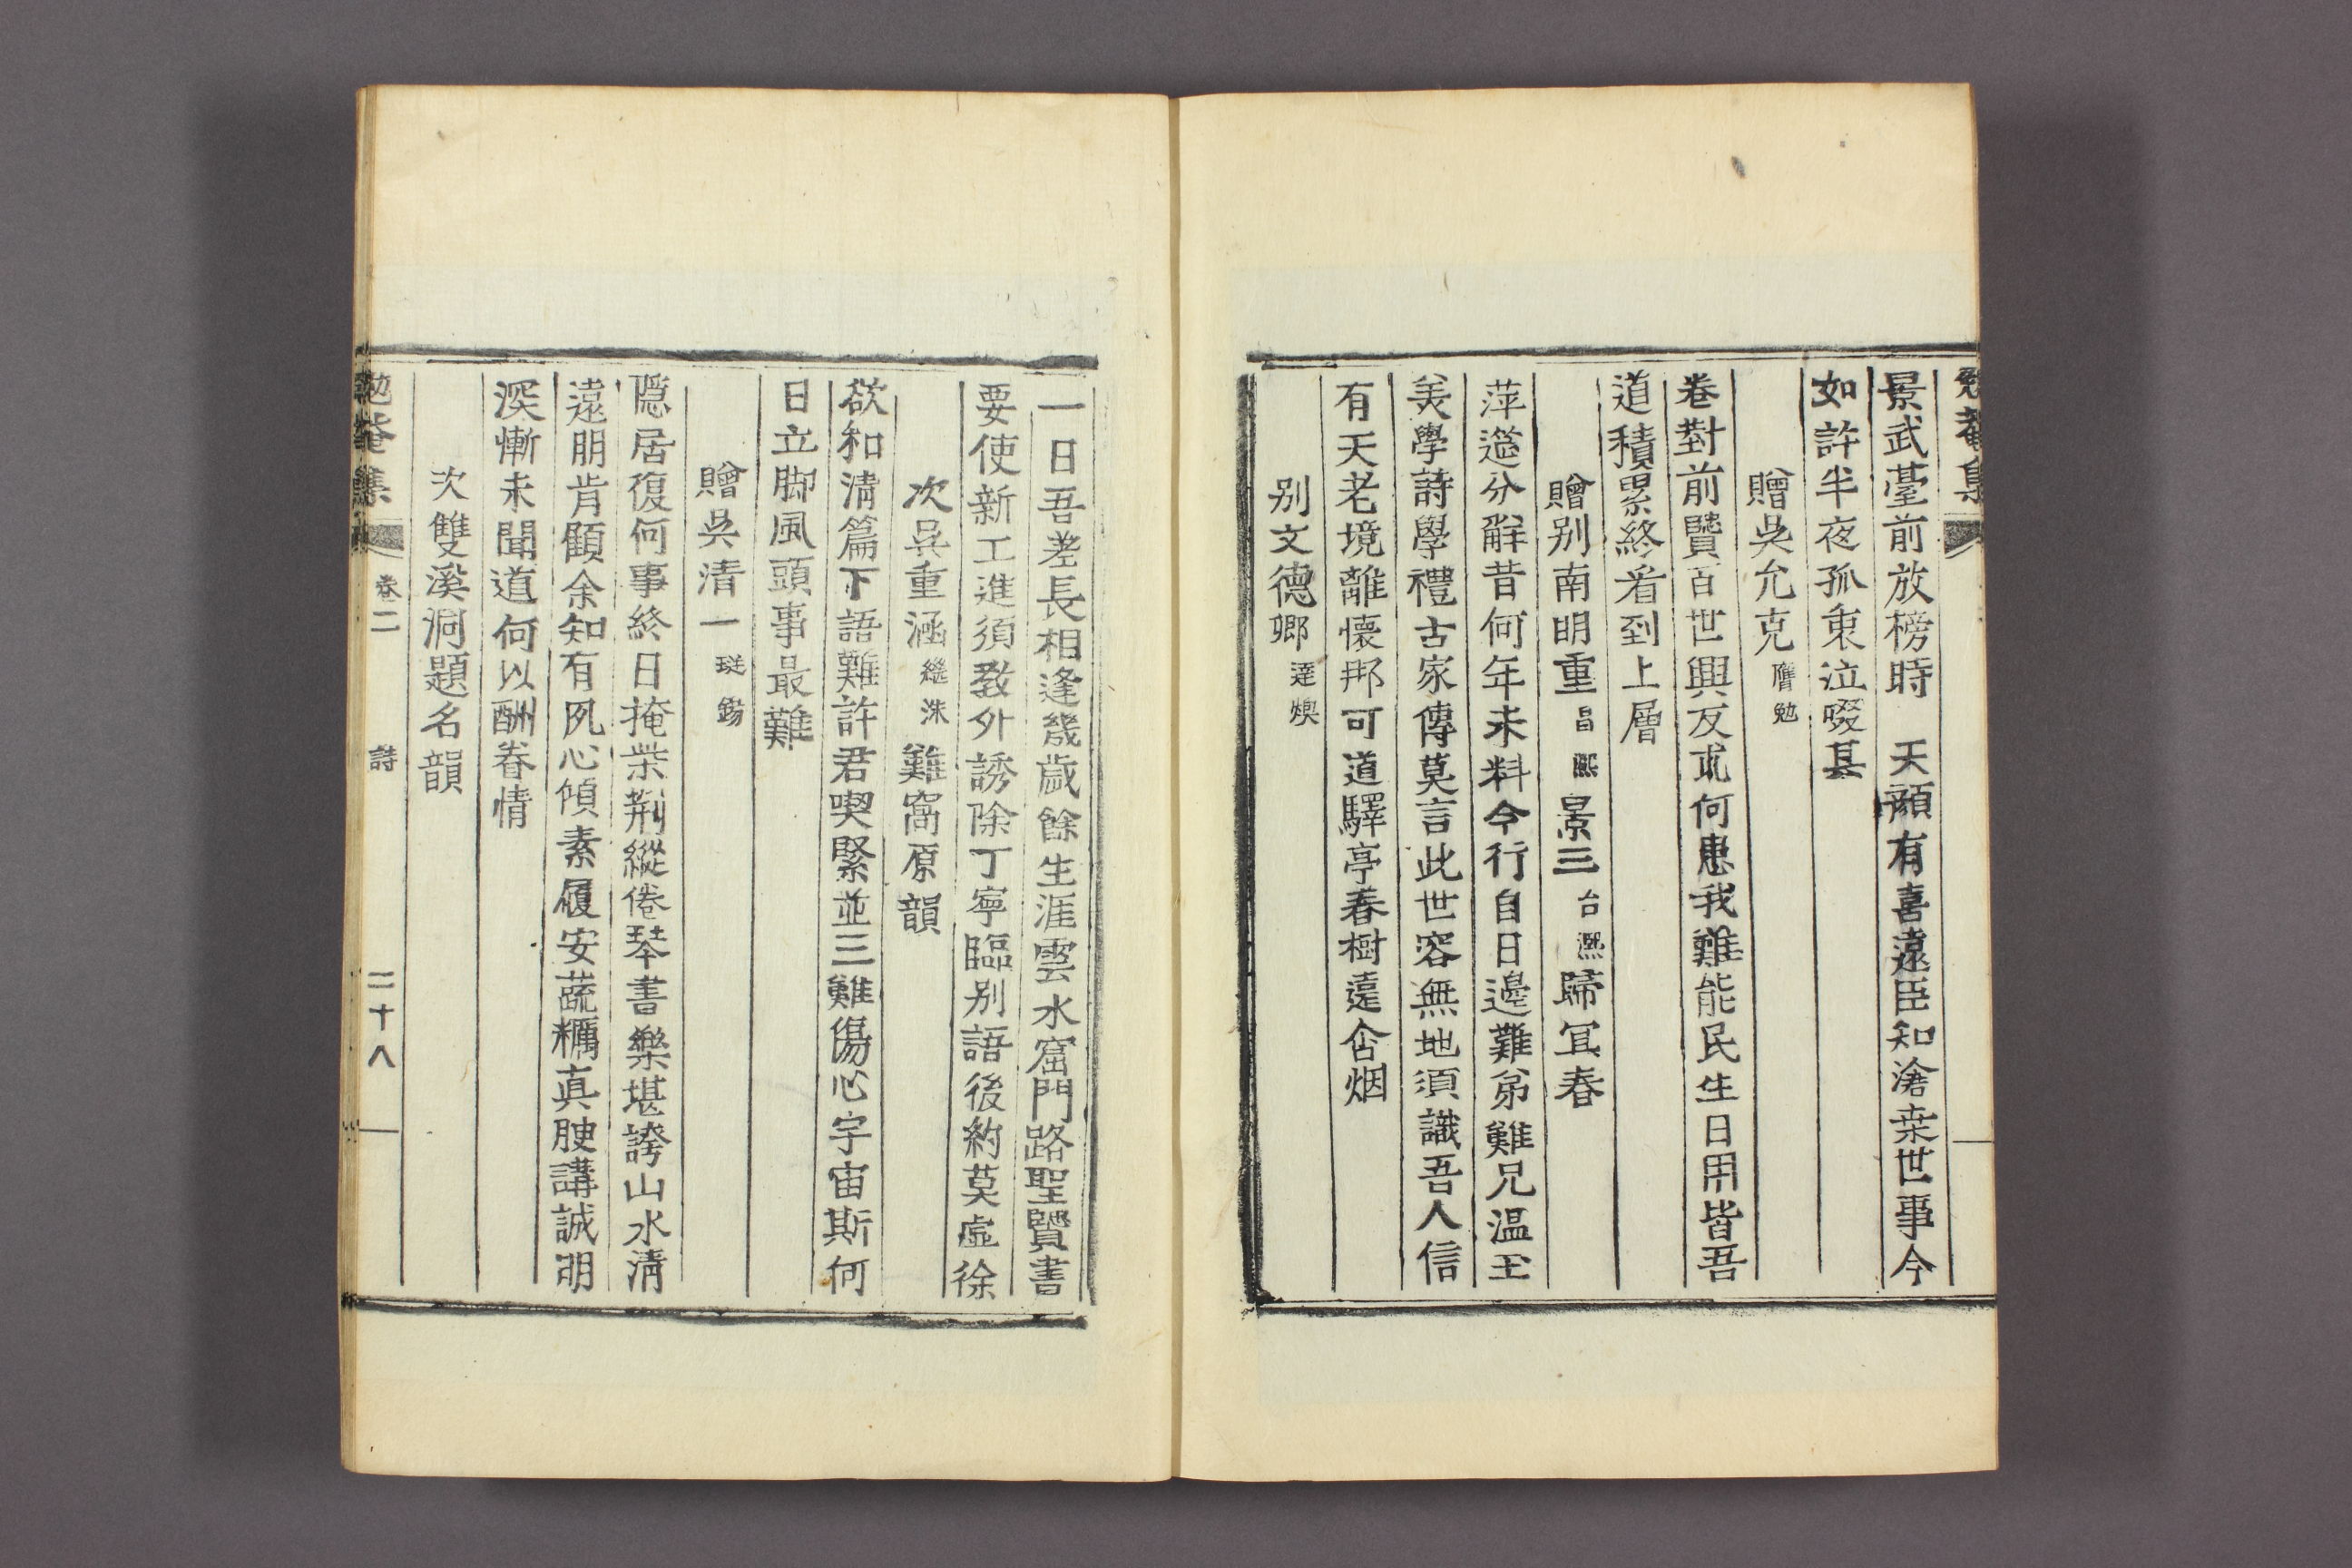 勉菴集
景武臺前放榜時　天顔有喜遠臣知滄桒世事今
如許半夜孤衷泣啜其
贈吳允克膺勉
卷對前賢百世興反求何患我難能民生日用皆吾
道積累終看到上層
贈别南明重昌熙景三台濕歸冝春
萍蓬分觧昔何年未料今行自日邊難弟難兄温玉
美學詩學禮古家傳莫言此世容無地須識吾人信
有天老境離懷那可道驛亭春樹遠含烟
别文德卿達煥
一日吾差長相逢幾歲餘生涯雲水窟門路聖賢書
要使新工進須教外誘除丁寧臨别語後約莫虚徐
次吳重涵繼洙難窩原韻
欲和淸篇下語難許君喫緊並三難傷心宇宙斯何
日立脚風頭事最難
贈吳清一珽錫
隱居復何事終日掩柴荆縱倦琴書樂堪誇山水淸
遠朋肯顧余知有夙心傾素履安蔬糲真腴講誠明
深慚未聞道何以酬眷情
次雙溪洞題名韻
勉菴集　卷二　詩　二十八